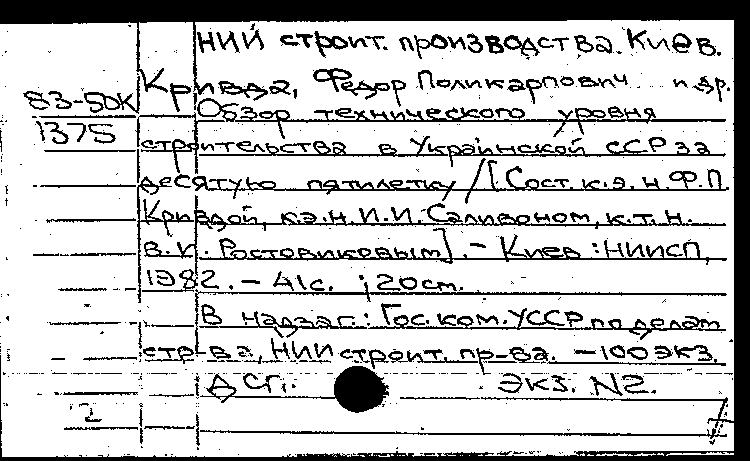 НИИ строит. производства. Киев.
Кривда, Федор Поликарпович и др.
83-50К Обзор технического уровня
1375 строительства в Украинской ССР за
десятую пятилетку / [Сост. к.э.н. Ф.П.
Кривдой, к.э.н. И.И. Саливоном, к.т.н.
В.И. Ростовиковым]. - Киев : НИИСП,
1982. - 41с. ; 20см.
В надзаг.: Гос. ком. УССР по делам
стр-ва, НИИ строит. пр-ва. - 100 экз.
ДСП. Экз. N2.
2